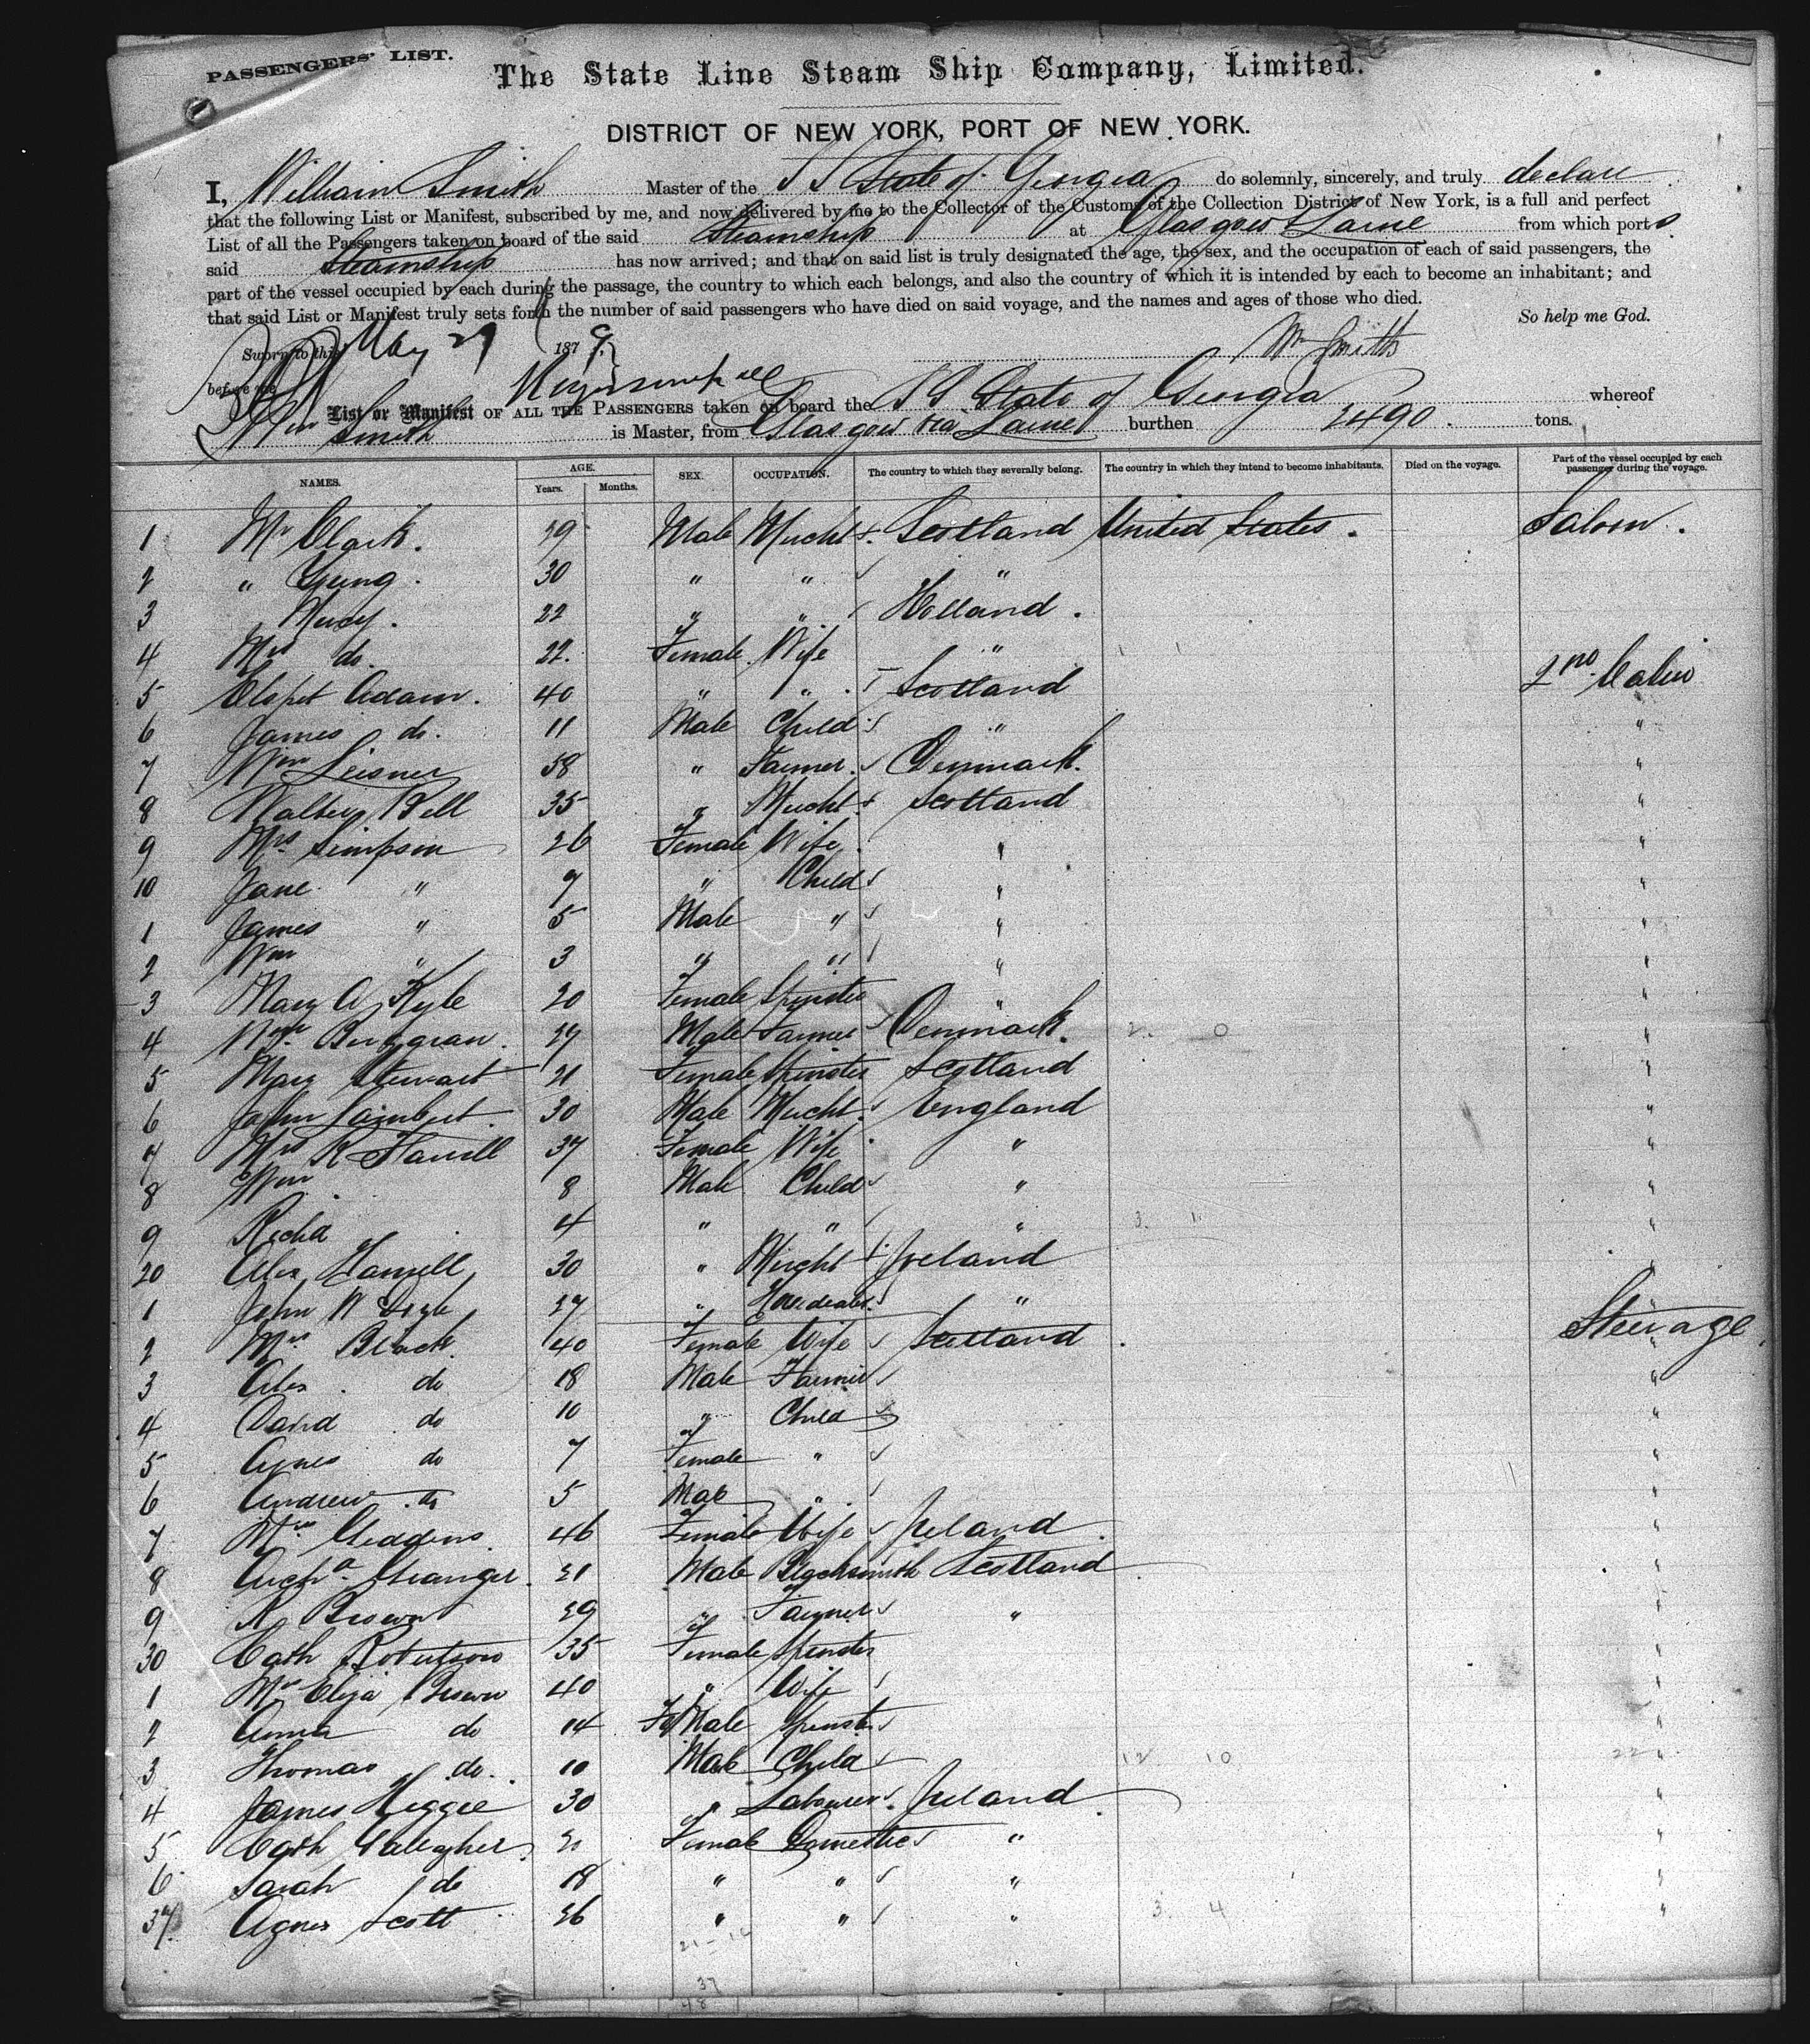 PASSENGERS' LIST.
The State Line Steam Ship Company, Limited.
DISTRICT OF NEW YORK, PORT OF NEW YORK.
I, William Smith Master of the SS State of Georgia do solemnly, sincerely, and truly declare
that the following List or Manifest, subscribed by me, and now delivered by me to the Collector of the Customs of the Collection District of New York, is a full and perfect
List of all the Passengers taken on board of the said Steamship at Glasgow & Larne from which ports
said Steamship has now arrived; and that on said list is truly designated the age, the sex, and the occupation of each of said passengers, the
part of the vessel occupied by each during the passage, the country to which each belongs, and also the country of which it is intended by each to become an inhabitant; and
that said List or Manifest truly sets forth the number of said passengers who have died on said voyage, and the names and ages of those who died.
So help me God.
Sworn to this May 29 1879 Wm Smith
before me
List or Manifest OF ALL THE PASSENGERS taken on board the SS State of Georgia whereof
Wm Smith is Master, from Glasgow via Larne burthen 2490 tons.
NAMES. AGE. Years. Months. SEX. OCCUPATION. The country to which they severally belong. The country in which they intend to become inhabitants. Died on the voyage. Part of the vessel occupied by each passenger during the voyage.
1 Mr Clark. 29 Male Mercht Scotland United States. Saloon.
2 " 30 " " "
3 22 " " Holland.
4 Mrs do. 22. Female Wife "
5 Elspet Adam. 40 " " Scotland 2nd Cabin
6 James do. 11 Male Child " "
7 Wm Leisner 58 " Farmer. Denmark. "
8 Bell 35 " Mercht Scotland "
9 Mrs Simpson 26 Female Wife " "
10 Jane " 7 " Child " "
1 James " 5 Male " " "
2 Wm " 3 " " " "
3 Mary A Kyle 20 Female Spinster " "
4 Wm 29 Male Farmer Denmark. "
5 Mary Stewart 21 Female Spinster Scotland "
6 John Lambert. 30 Male Mercht. England "
7 Mrs R 37 Female Wife " "
8 Wm 8 Male Child " "
9 Richd 4 " " " "
20 Alex 30 " Mercht Ireland "
1 John W 27 " "
2 Mrs Black. 40 Female Wife Scotland. Steerage
3 Alex. do 18 Male Farmer "
4 David do 10 " Child "
5 Agnes do 7 Female " "
6 Andrew do 5 Male " "
7 Mrs 46 Female Wife Ireland "
8 Archd Granger. 21 Male Blacksmith Scotland "
9 R Brown 29 " Farmer " "
30 Cath Robertson 35 Female Spinster "
1 Mrs Eliza Brown 40 " Wife "
2 Anna do 14 FeMale Spinster "
3 Thomas do. 10 Male Child "
4 James Heggie 30 " Labourer. Ireland "
5 Cath Gallagher 21 Female Domestic " "
6 Sarah do 18 " " " "
37. Agnes Scott 26 " " " "